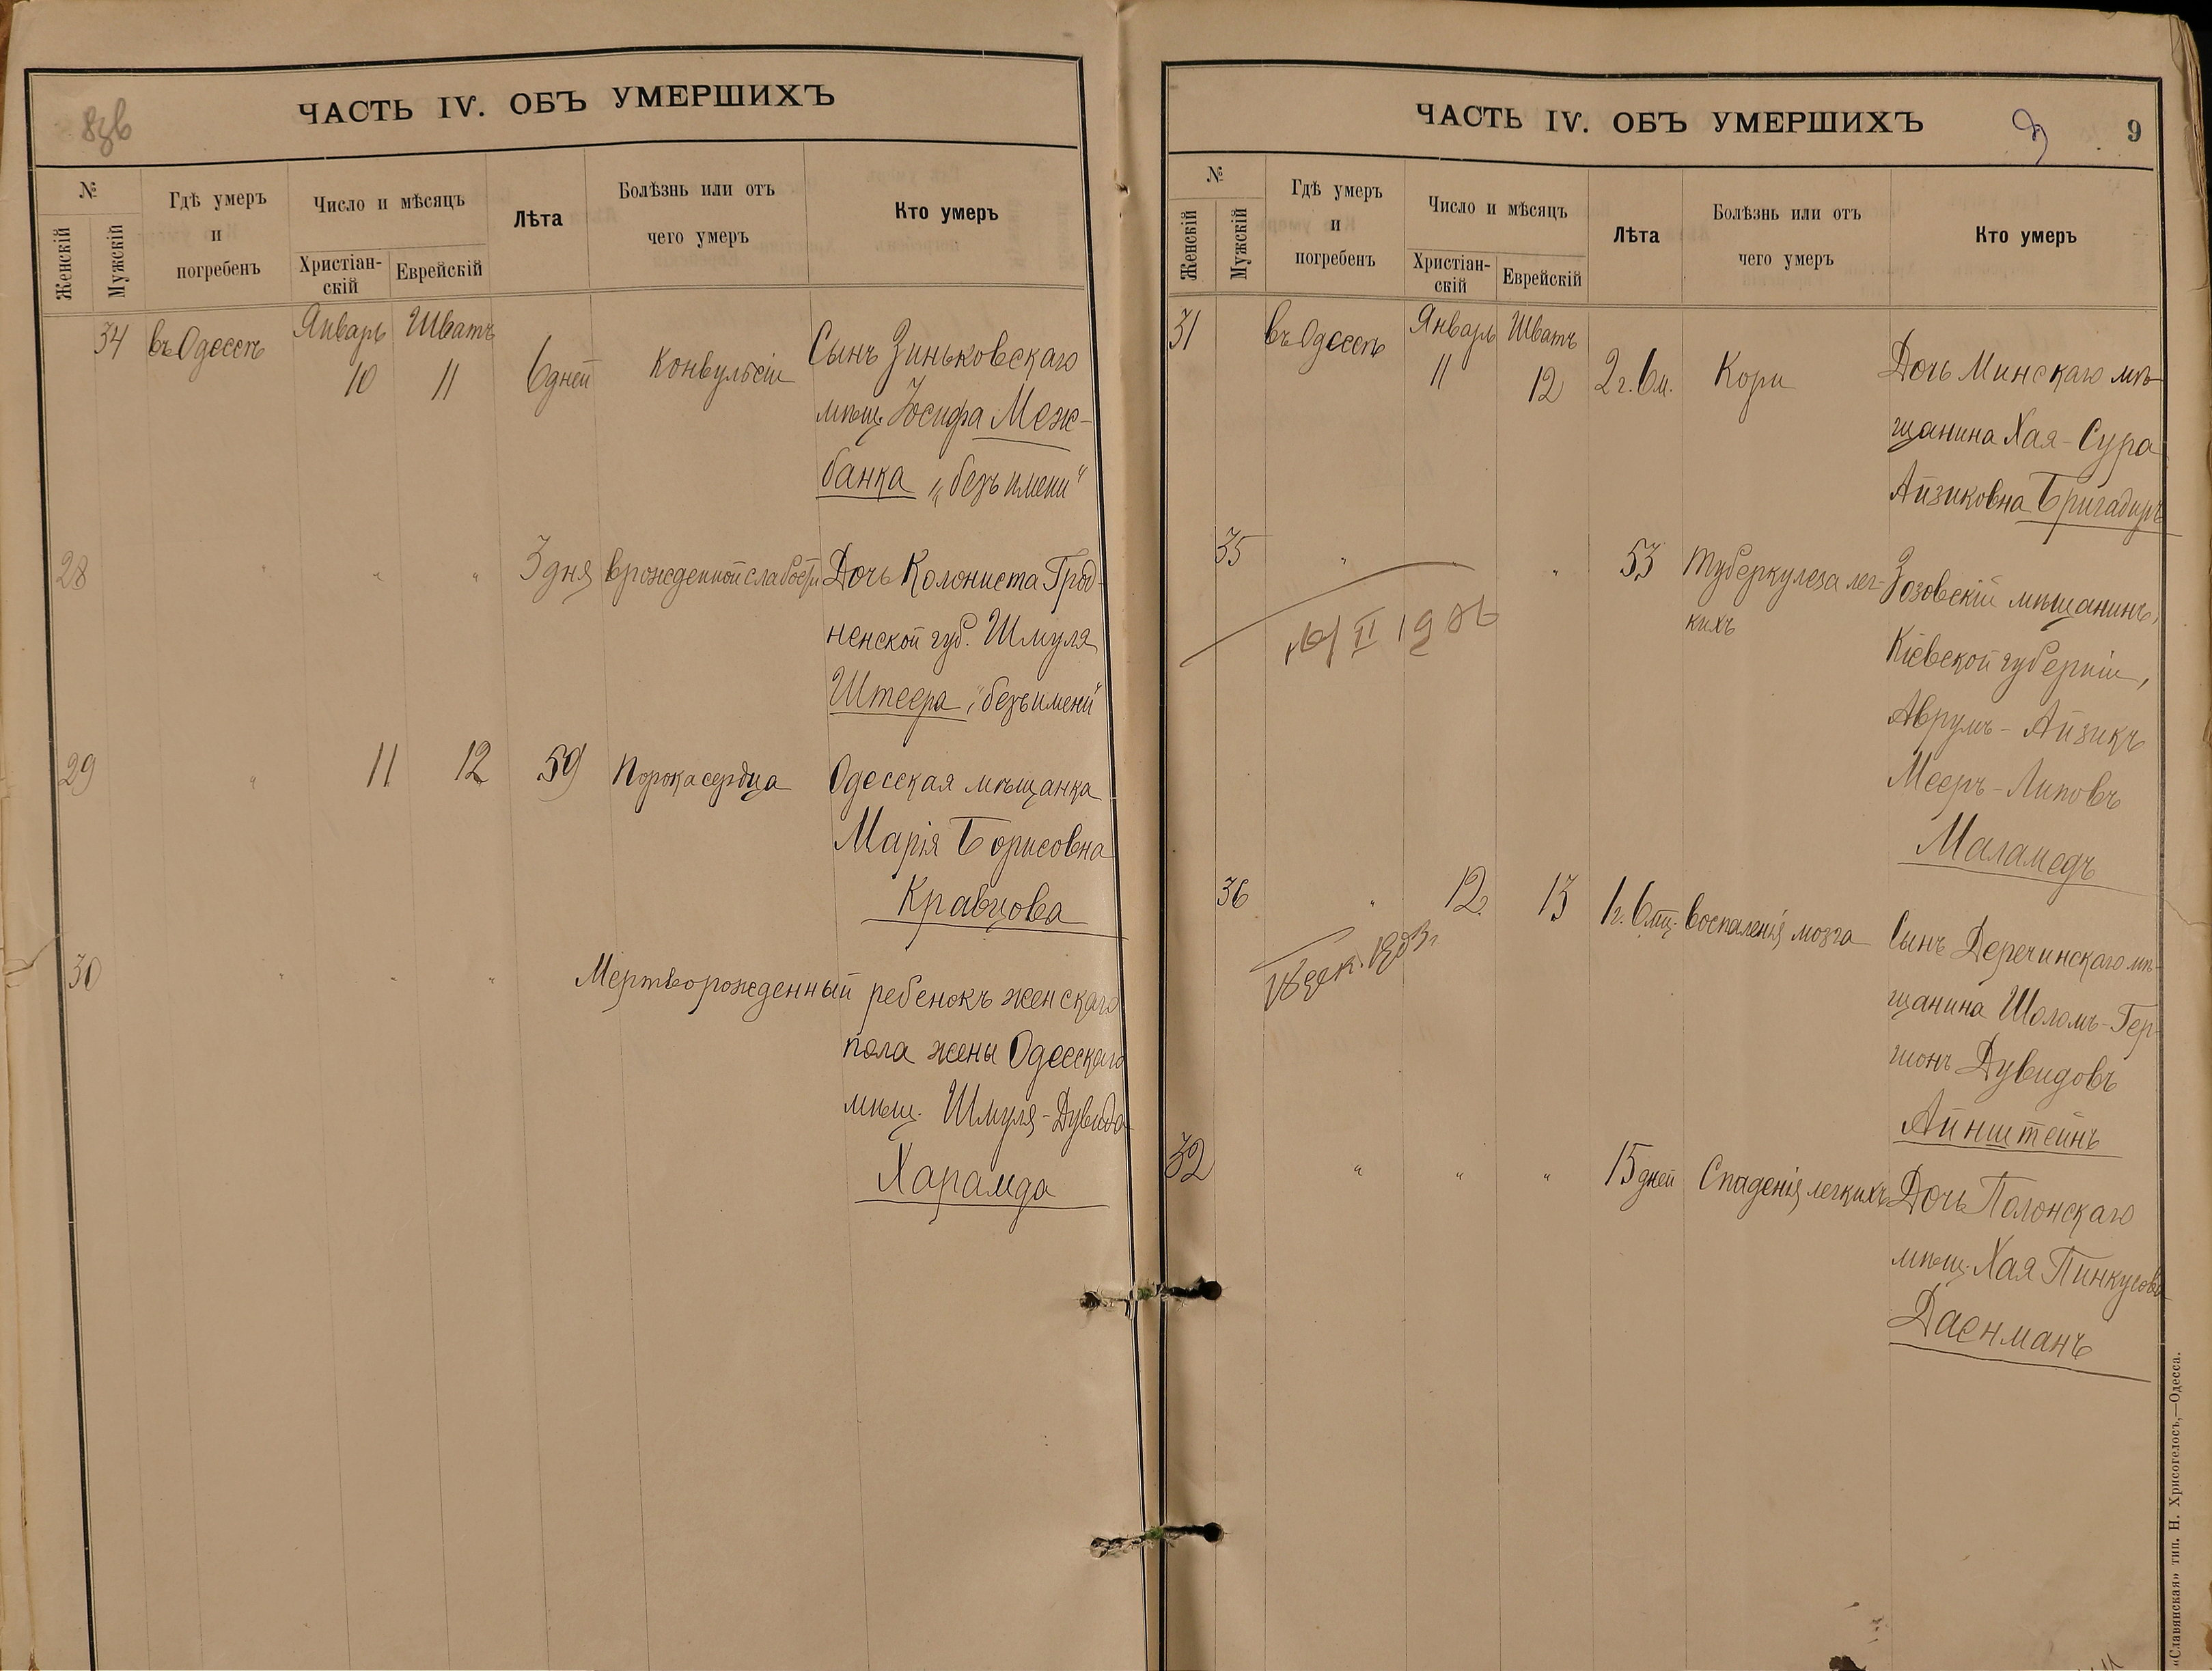 8зв
ЧАСТЬ IV. ОБЪ УМЕРШИХЪ
№
Женскій
Мужскій
Гдѣ умеръ
и
погребенъ
Число и мѣсяцъ
Христіан-
скій
Еврейскій
Лѣта
Болѣзнь или отъ
чего умеръ
Кто умеръ
34 въ Одессѣ Январь 10 Шватъ 11 6 дней Конвульсіи Сынъ Зиньковскаго
мѣщ. Іосифа Меж-
банка „безъ имени“
28 " " " 3 дня врожденной слабости Дочь Колониста Грод-
ненской губ. Шмуля
Штеера „безъ имени“
29 " 11 12 59 Порока сердца Одесская мѣщанка
Марія Борисовна
Кравцова
30 " " " Мертворожденный ребенокъ женскаго
пола жены Одесскаго
мѣщ. Шмуля-Дувида
Харамда
ЧАСТЬ IV. ОБЪ УМЕРШИХЪ
9
№
Женскій
Мужскій
Гдѣ умеръ
и
погребенъ
Число и мѣсяцъ
Христіан-
скій
Еврейскій
Лѣта
Болѣзнь или отъ
чего умеръ
Кто умеръ
31 въ Одессѣ Январь 11 Шватъ 12 2 г. 6 м. Кори Дочь Минскаго мѣ-
щанина Хая-Сура
Айзиковна Бригадиръ
35 " " " 53 Туберкулеза лег-
кихъ
Зозовскій мѣщанинъ,
Кіевской губерніи,
Аврумъ-Айзикъ
Мееръ-Липовъ
Маламедъ
II 1906
36 " 12. 13 1 г. 6 мц. воспаленія мозга Сынъ Деречинскаго мѣ-
щанина Шоломъ-Гер-
шонъ Дувидовъ
Айнштейнъ
32 " " " 15 дней Спаденія легкихъ Дочь Полонскаго
мѣщ. Хая Пинкусова
Даенманъ
«Славянская» тип. Н. Хрисогелосъ,—Одесса.